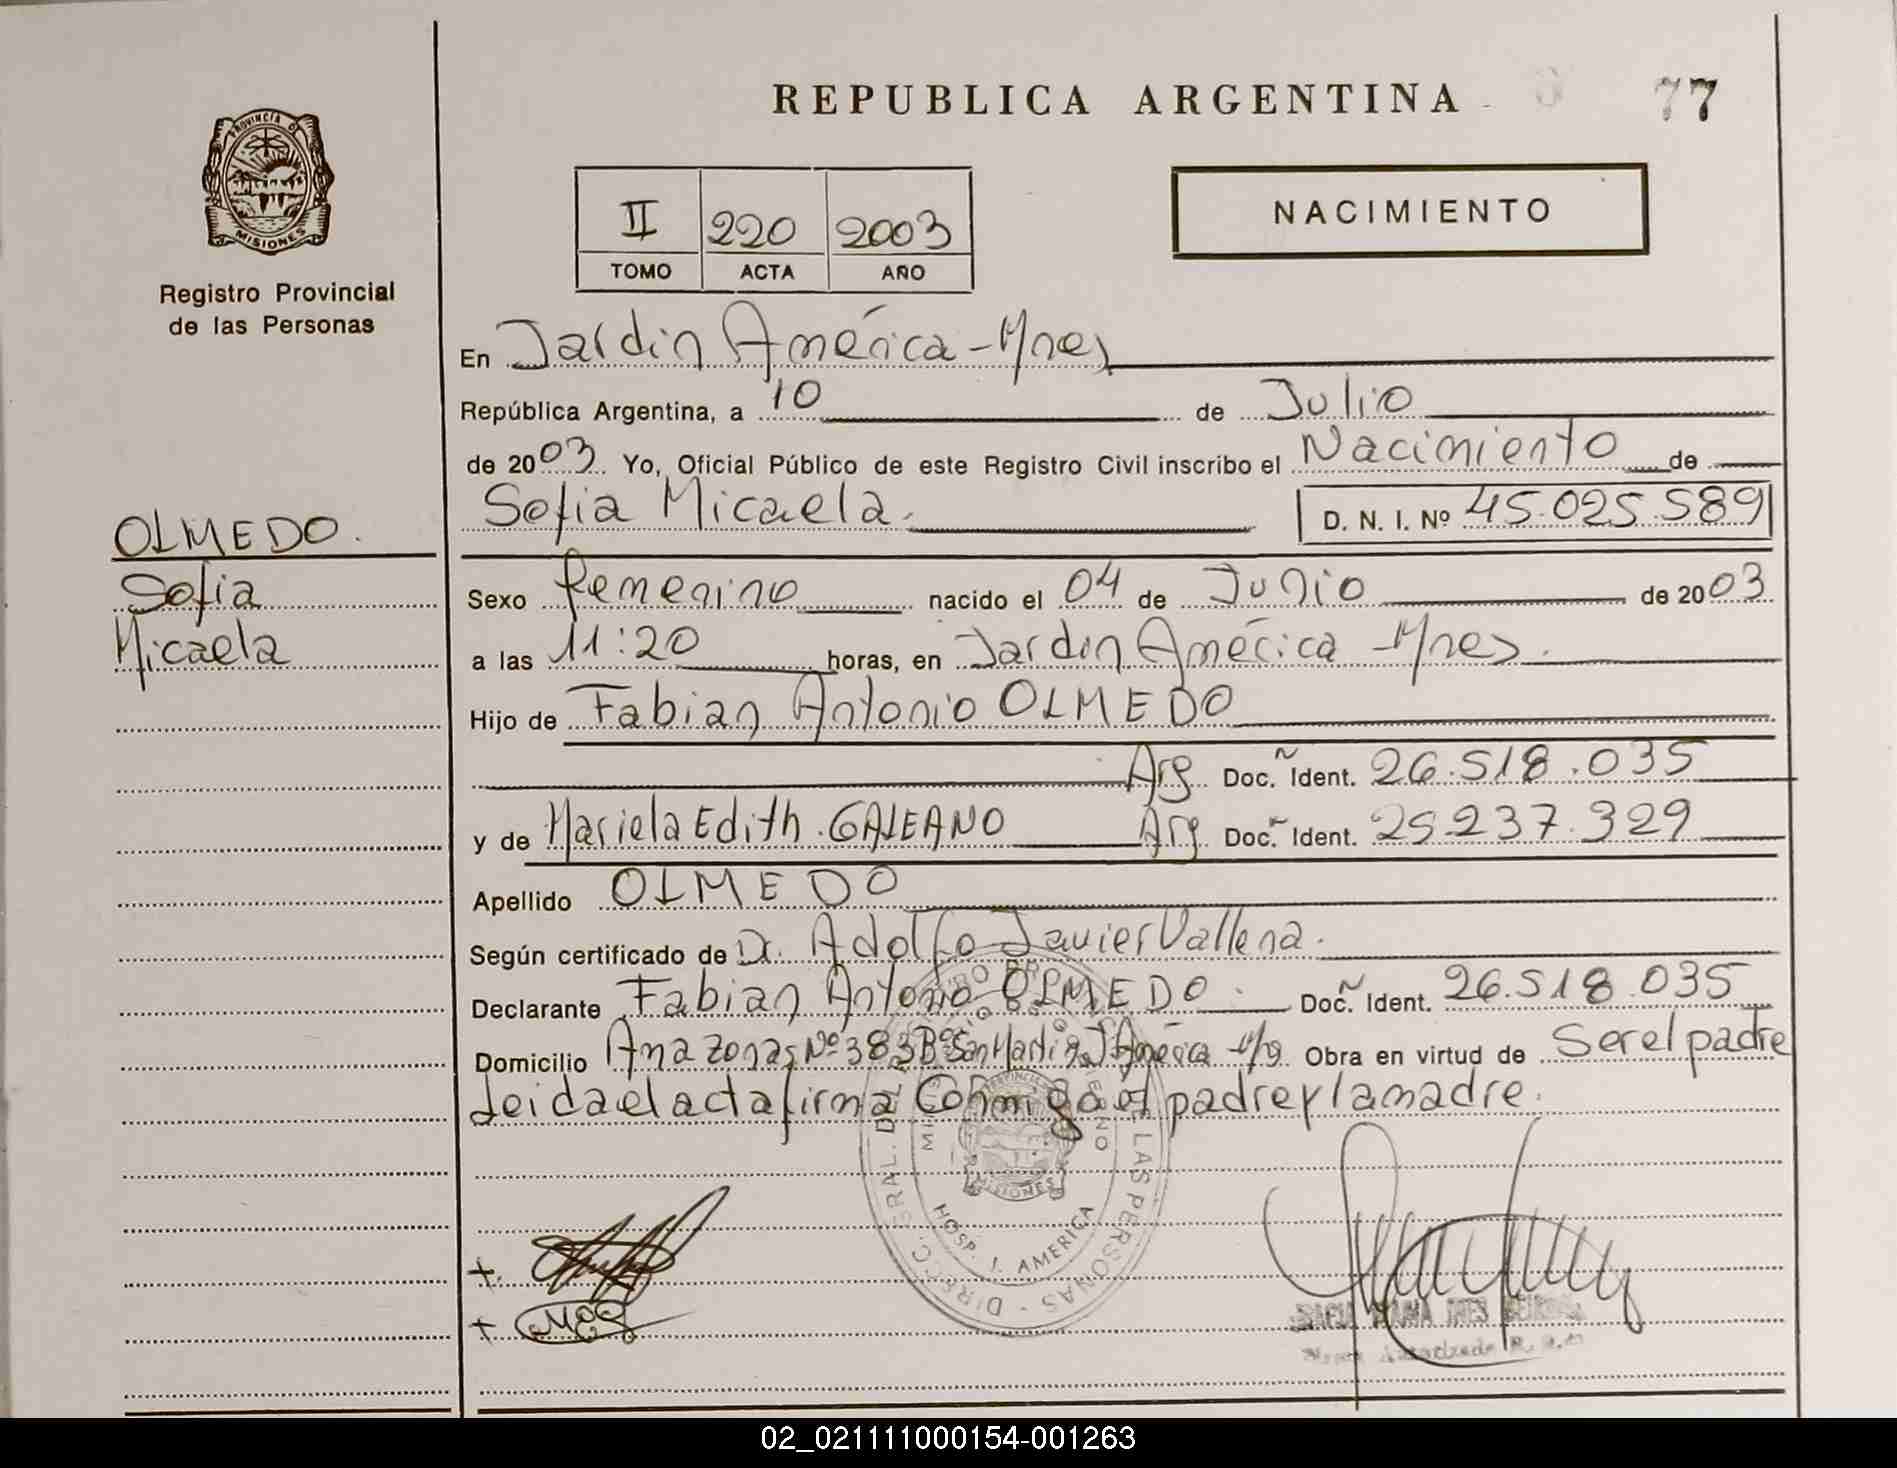 REPUBLICA ARGENTINA
77
PROVINCIA DE
MISIONES
Registro Provincial
de las Personas
II 220 2003
TOMO ACTA AÑO
NACIMIENTO
En Jardin América - Mnes
República Argentina, a 10 de Julio
de 2003 Yo, Oficial Público de este Registro Civil inscribo el Nacimiento de
Sofia Micaela. D. N. I. Nº 45.025.589
OLMEDO.
Sofia
Micaela
Sexo femenino nacido el 04 de Junio de 2003
a las 11:20 horas, en Jardin América - Mnes.
Hijo de Fabian Antonio OLMEDO
Arg. Doc. Ident. 26.518.035
y de Mariela Edith GALEANO Arg. Doc. Ident. 25.237.329
Apellido OLMEDO
Según certificado de Dr. Adolfo Javier Vallena.
Declarante Fabian Antonio OLMEDO. Doc. Ident. 26.518.035
Domicilio Amazonas Nº 383 Bº San Martin J. América Obra en virtud de Ser el padre
Leida el acta firma Conmigo el padre y la madre.
LAS PERSONAS
HOSP. J. AMERICA
MISIONES
02_021111000154-001263